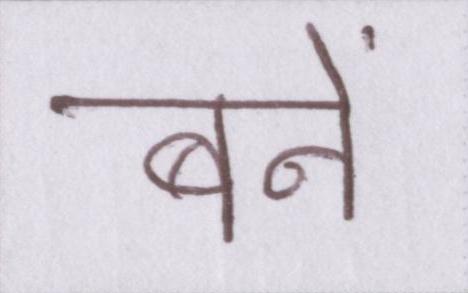 बनें